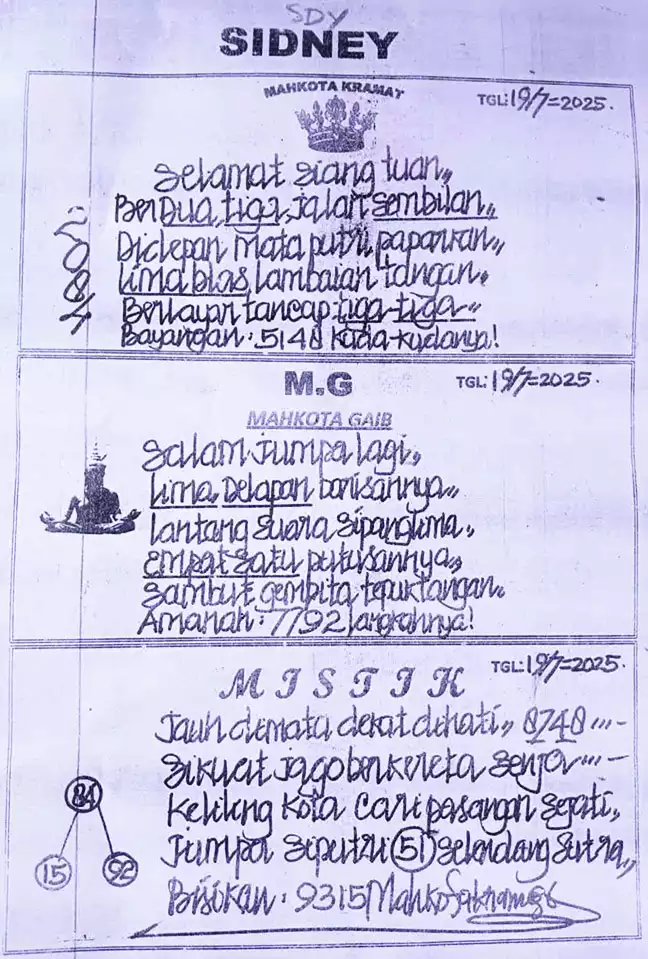 SDY
SIDNEY
MAHKOTA KRAMAT
TGL: 19/7=2025.
Selamat siang tuan,,
Ber Dua, tiga, jalan sembilan,,
Lima blas, lambaian tangan.
Berlayar tancap tiga-tiga,,
Bayangan: 5148 kuda-kudanya!
M.G
TGL: 19/7=2025.
MAHKOTA GAIB
Salam Jumpa lagi,,
Lima, Delapan barisannya,,
Lantang suara sipanglima,,
Empat satu putusannya,,
Sambut gembita tepuk tangan.
Amanah: 7792 langkahnya!
MISTIK
TGL: 19/7=2025.
Jauh dimata dekat dihati,, 8748 ...-
Sikuat Jago berkereta senja ...-
Keliling Kota cari pasangan sejati,,
Jumpa siputri 51 selendang sutra,,
Bisikan: 9315 Mahkota
81
15 92